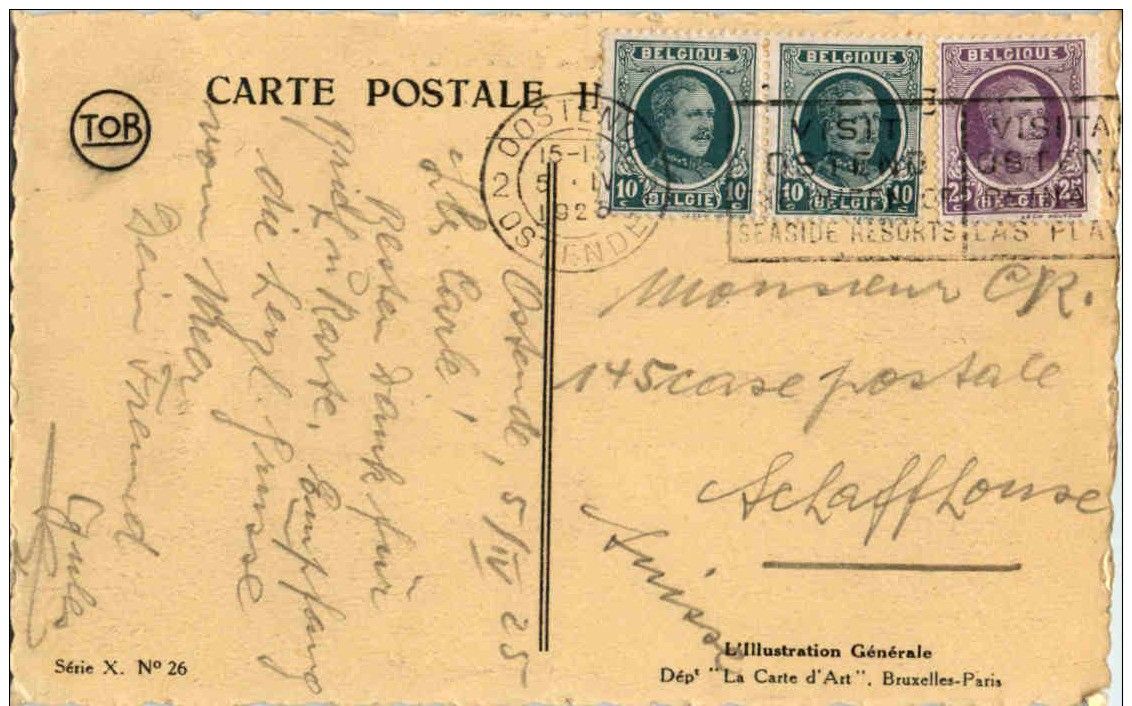 CARTE POSTALE
TOB
BELGIQUE
10 10
BELGIE
BELGIQUE
10 10
BELGIE
BELGIQUE
25 25
BELGIE
2 OOSTENDE
5 IV
OSTENDE
VISIT
OSTEND
SEASIDE RESORTS
VISITA
OSTEND
LAS PLA
Ostende, 5/IV 25
Lb. Carle!
Besten Dank für
Brief u Karte, Empfang
die herzl. Grüsse
von
Dein Freund
Jules
Monsieur CR.
145 case postale
Schaffhouse
Suisse
Série X. Nº 26
L'Illustration Générale
Dépt "La Carte d'Art", Bruxelles-Paris